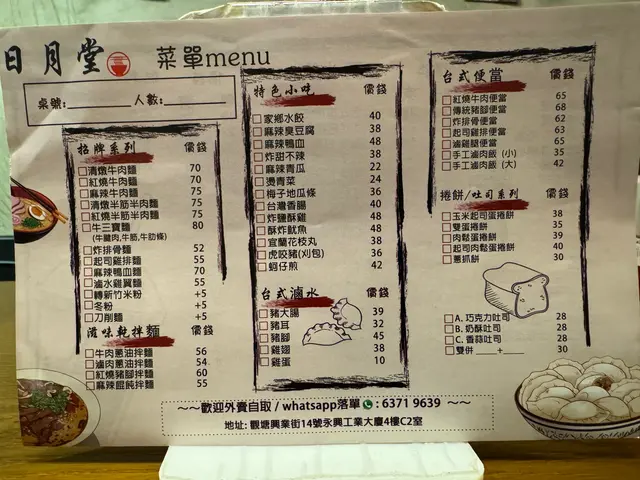 日月堂 菜單menu
桌號:________ 人數:________
招牌系列 價錢
清燉牛肉麵 70
紅燒牛肉麵 70
麻辣牛肉麵 75
清燉牛筋半肉麵 75
紅燒牛筋半肉麵 75
牛三寶麵 80
(牛腱肉,牛筋,牛肋條)
炸排骨麵 52
起司雞排麵 55
麻辣鴨血麵 70
滷水雞翼麵 55
轉新竹米粉 +5
冬粉 +5
刀削麵 +5
滋味乾拌麵 價錢
牛肉蔥油拌麵 56
滷肉蔥油拌麵 54
紅燒豬腳拌麵 60
麻辣餛飩拌麵 55
特色小吃 價錢
家鄉水餃 40
麻辣臭豆腐 38
麻辣鴨血 48
炸甜不辣 38
麻辣青瓜 22
燙青菜 24
梅子地瓜條 36
台灣香腸 40
炸鹽酥雞 48
酥炸魷魚 48
宜蘭花枝丸 38
虎咬豬(刈包) 36
蚵仔煎 42
台式滷水 價錢
豬大腸 39
豬耳 32
豬腳 45
雞翅 38
雞蛋 10
台式便當 價錢
紅燒牛肉便當 65
傳統豬腳便當 68
炸排骨便當 62
起司雞排便當 63
滷雞腿便當 65
手工滷肉飯 (小) 35
手工滷肉飯 (大) 42
捲餅/吐司系列 價錢
玉米起司蛋捲餅 38
雙蛋捲餅 35
肉鬆蛋捲餅 39
起司肉鬆蛋捲餅 40
蔥抓餅 30
A. 巧克力吐司 28
B. 奶酥吐司 28
C. 香蒜吐司 28
雙併 ___+___ 30
~~歡迎外賣自取 / whatsapp落單 : 6371 9639 ~~
地址: 觀塘興業街14號永興工業大廈4樓C2室